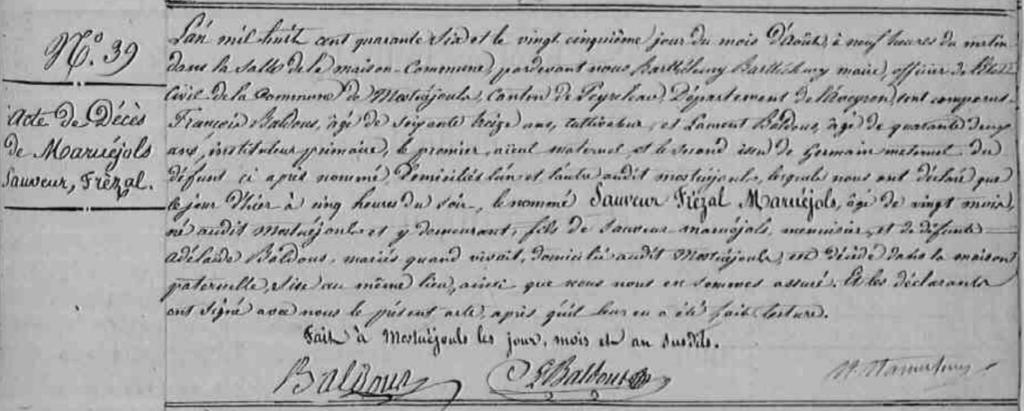 N.º 39
Acte de Décès
de Maruéjols
Sauveur, Frézal.
L'an mil huit cent quarante six et le vingt cinquième jour du mois d'Août, à neuf heures du matin
dans la Salle de la maison-Commune, pardevant nous Barthélemy Barthélemy maire, officier de l'état
Civil de la Commune de Mostuéjouls, Canton de Peyreleau, Département de l'Aveyron, sont comparus
François Baldous, âgé de soixante treize ans, cultivateur, et Laurent Baldous, âgé de quarante deux
ans, instituteur primaire, le premier, aïeul maternel, et le second issu de Germain maternel du
défunt ci après nommé, Domiciliés l'un et l'autre audit mostuéjouls, lesquels nous ont déclaré que
le jour d'hier à cinq heures du soir, le nommé Sauveur Frézal Maruéjols, âgé de vingt mois,
né audit Mostuéjouls et y demeurant, fils de Sauveur maruéjols, menuisier, et de défunte
Adélaïde Baldous, mariés quand vivait, domicilié audit Mostuéjouls, est décédé dans la maison
paternelle, sise au même lieu, ainsi que nous nous en sommes assuré. Et les déclarants
ont signé avec nous le présent acte, après qu'il leur en a été fait lecture.
Fait à Mostuéjouls les jour, mois et an susdits.
Baldous Baldous